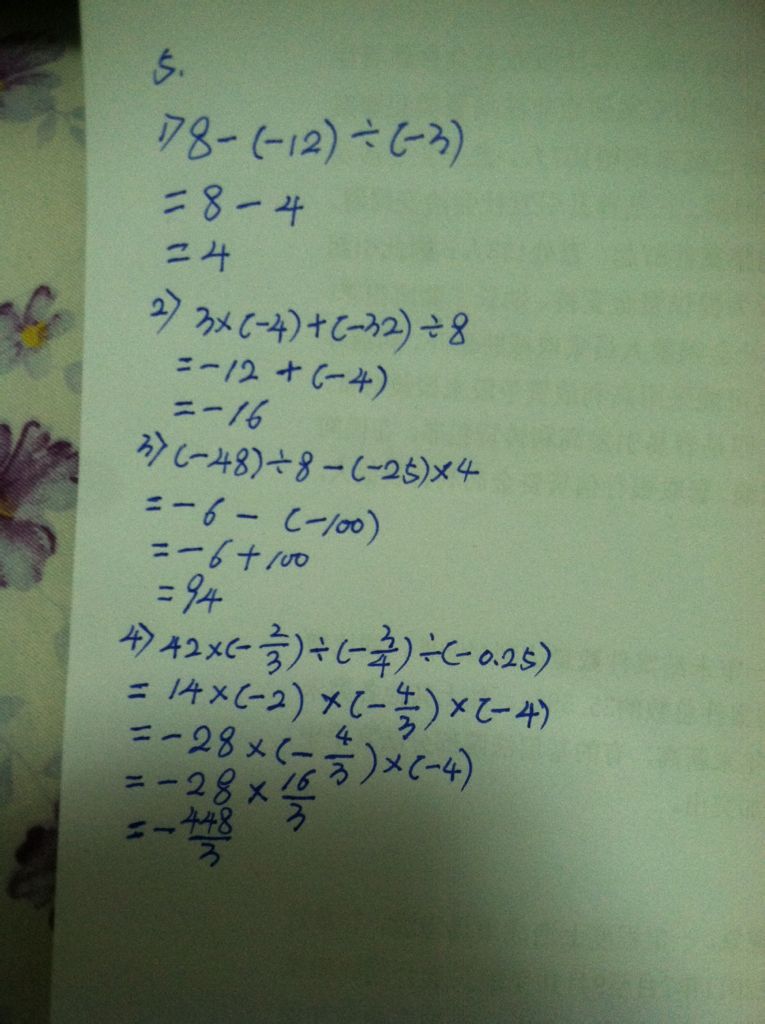 5.
1) 8-(-12)÷(-3)
=8-4
=4
2) 3×(-4)+(-32)÷8
=-12+(-4)
=-16
3) (-48)÷8-(-25)×4
=-6-(-100)
=-6+100
=94
4) 42×(-2/3)÷(-3/4)÷(-0.25)
=14×(-2)×(-4/3)×(-4)
=-28×(-4/3)×(-4)
=-28×16/3
=-448/3